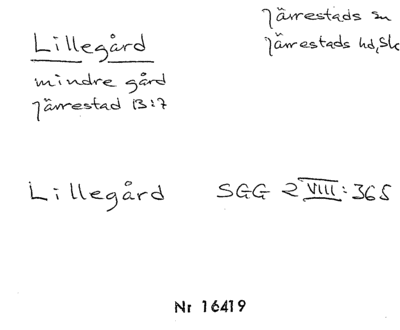 Järrestads sn
Lillegård Järrestads hd, Sk
mindre gård
Järrestad 13:7
Lillegård SGG 2 VIII: 365
Nr 16419